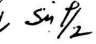 sin φ/2